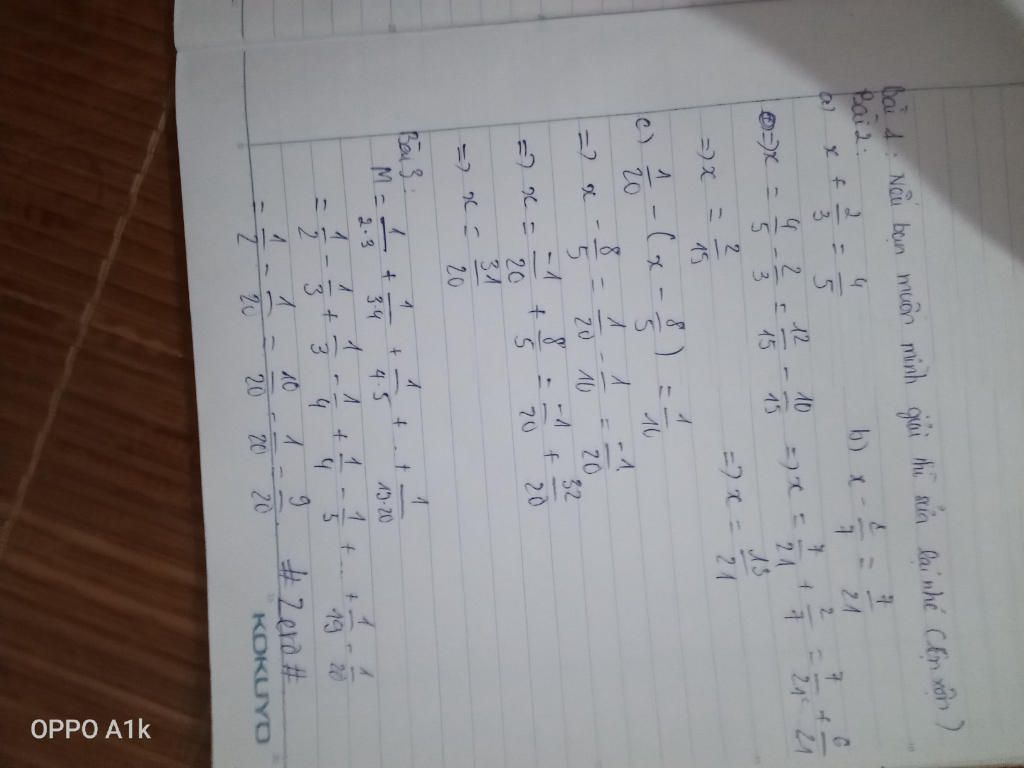 Bài 1: Nếu bạn muốn mình giải thì sửa lại nhé (lộn xộn)
Bài 2:
a) x + 2/3 = 4/5
=> x = 4/5 - 2/3 = 12/15 - 10/15
=> x = 2/15
b) x - 2/7 = 7/21
=> x = 7/21 + 2/7 = 7/21 + 6/21
=> x = 13/21
c) 1/20 - (x - 8/5) = 1/10
=> x - 8/5 = 1/20 - 1/10 = -1/20
=> x = -1/20 + 8/5 = -1/20 + 32/20
=> x = 31/20
Bài 3:
M = 1/2.3 + 1/3.4 + 1/4.5 + ... + 1/19.20
= 1/2 - 1/3 + 1/3 - 1/4 + 1/4 - 1/5 + ... + 1/19 - 1/20
= 1/2 - 1/20 = 10/20 - 1/20 = 9/20 # Zera #
KOKUYO
OPPO A1k